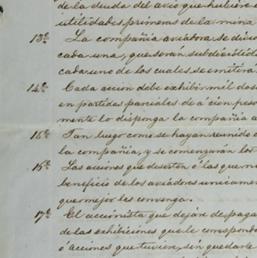 de la deuda del avio que hubiere
utilidades, primeras de la mina
13ª. La compañia aviadora se divid
cada una, que serán subdivididas
cada uno de los cuales, se emitira
14ª. Cada accion debe exhibir mil dos
en partidas parciales de a cien pesos
mente lo disponga la compañia a
16ª. Tan luego como se hayan reunido
la compañia, y se comenzarán los
15ª. Las acciones que deserten ó las que
beneficio de los aviadores unicamen
que mejor les convenga.
17ª. El accionista que dejare de paga
de las exhibiciones que le correspond
ó acciones que tuviere, sin quedarle